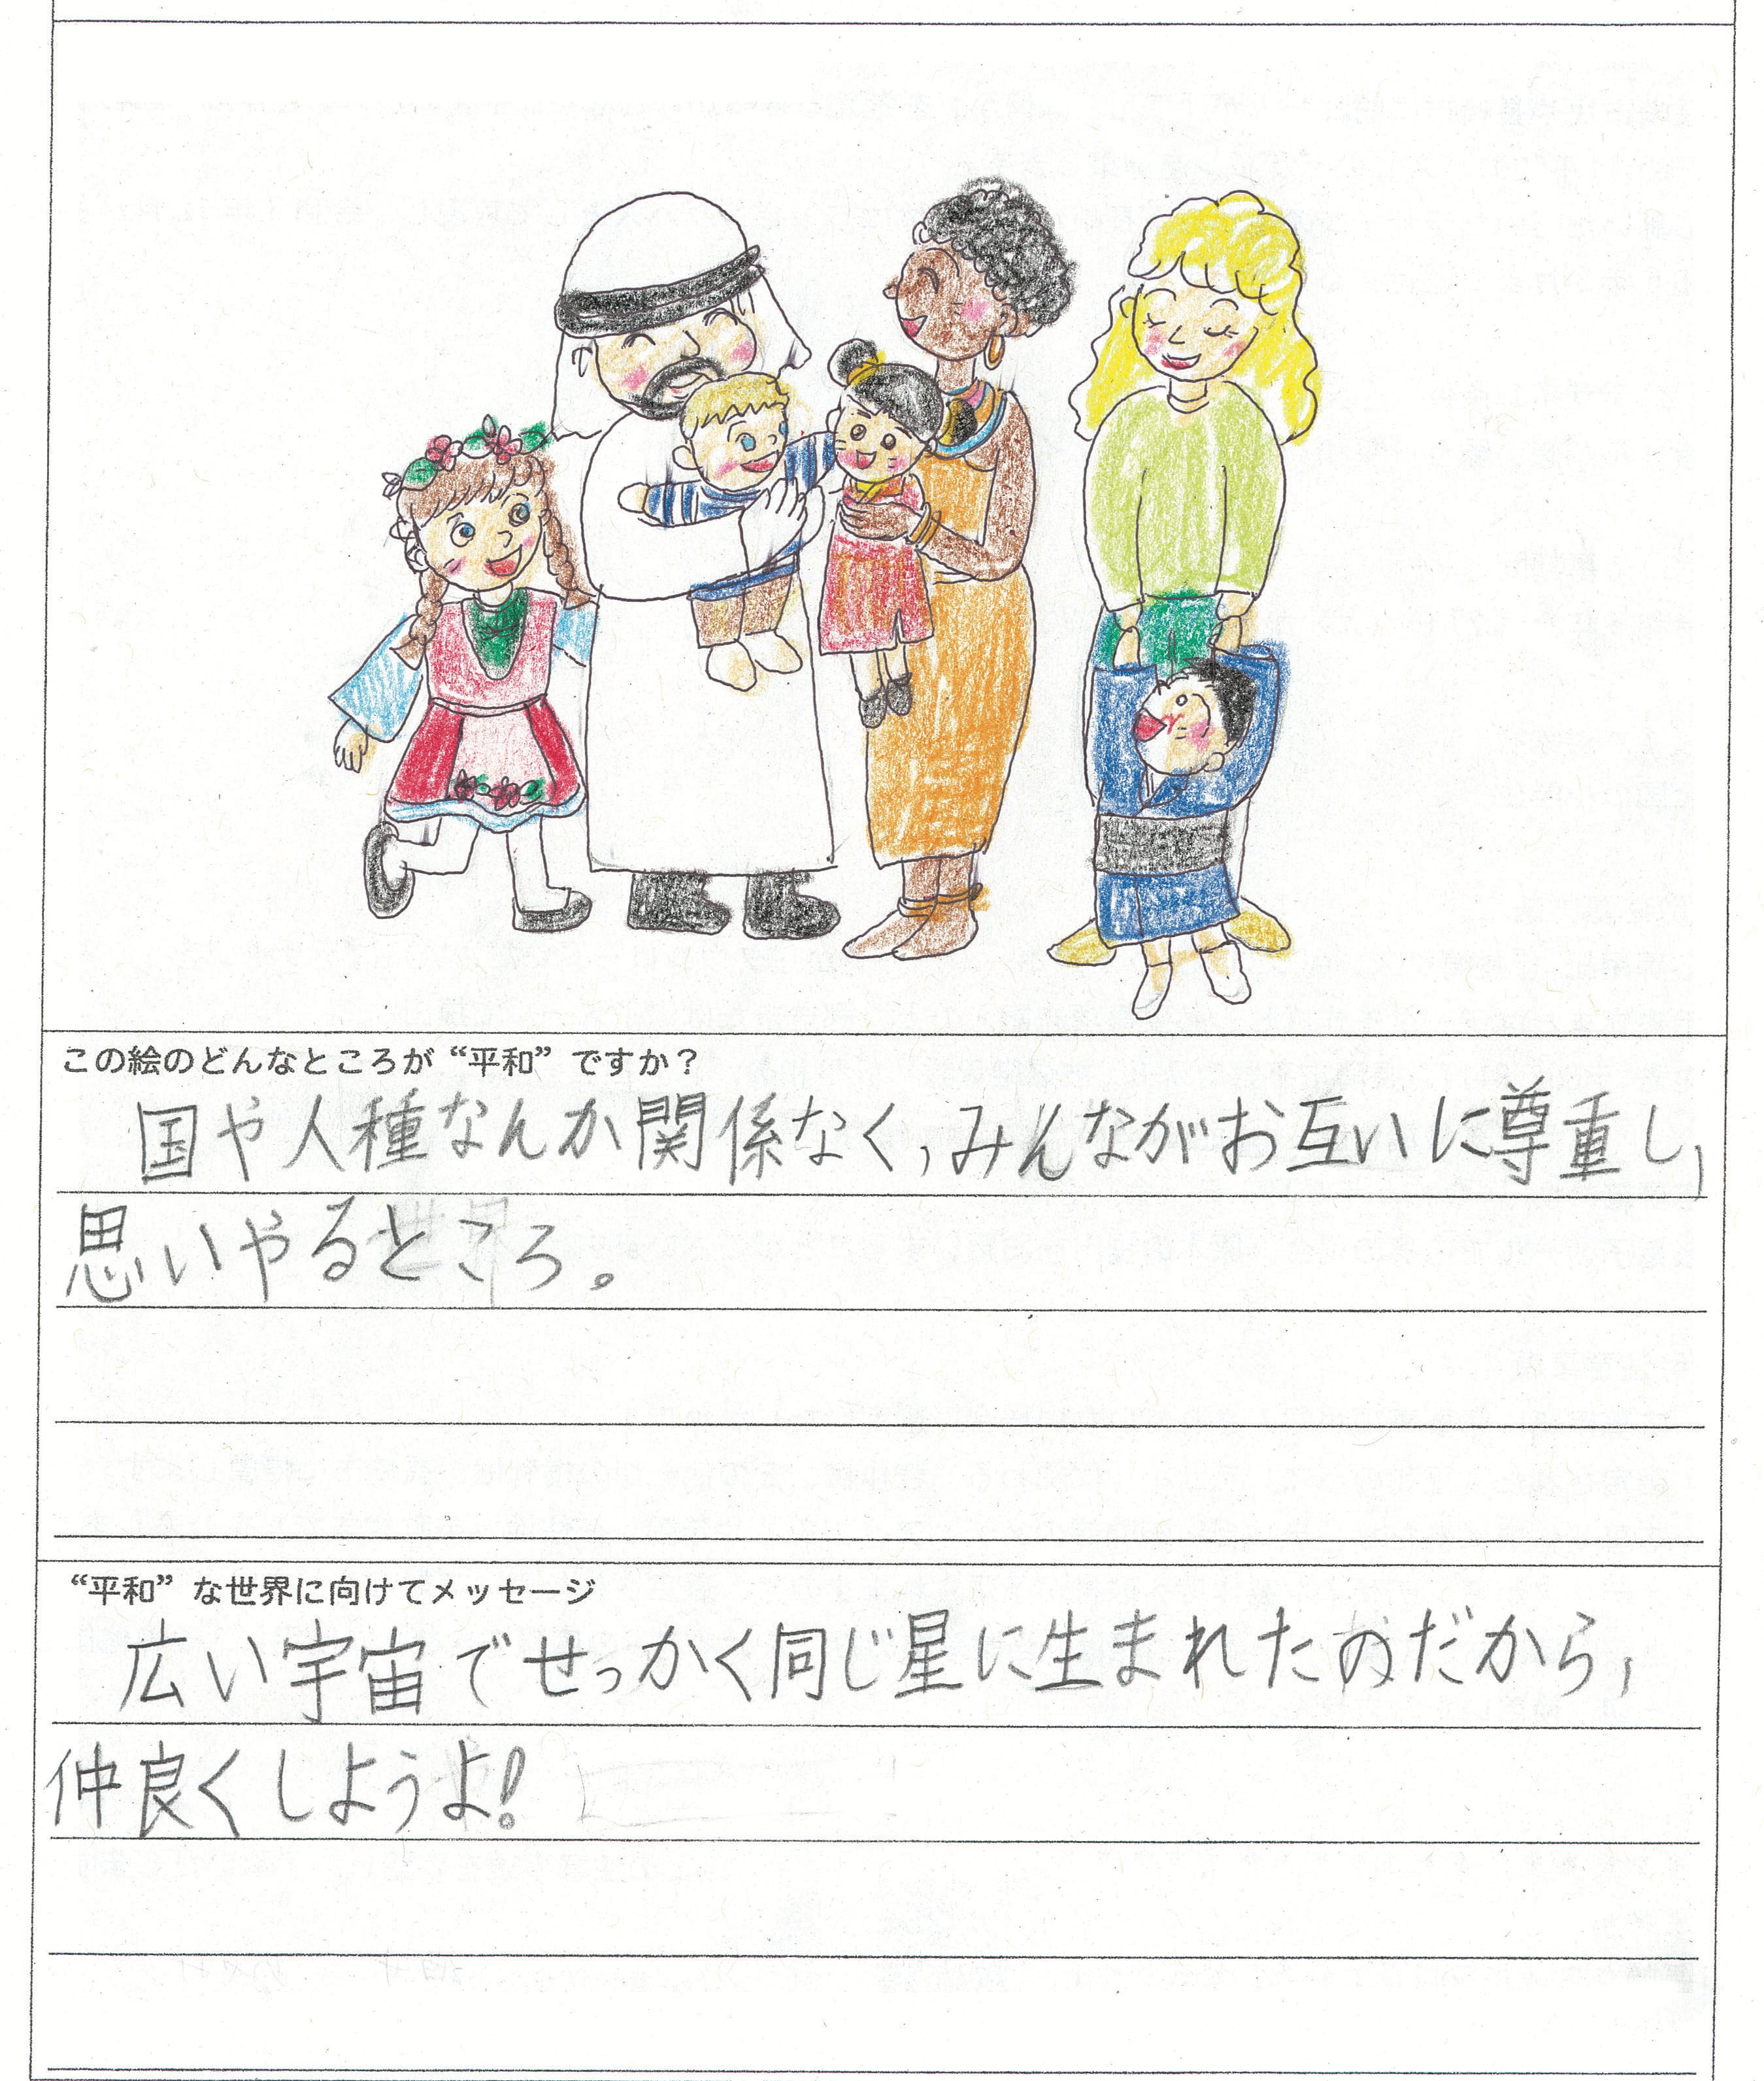 この絵のどんなところが“平和”ですか？
国や人種なんか関係なく,みんながお互いに尊重し,
思いやるところ。
“平和”な世界に向けてメッセージ
広い宇宙でせっかく同じ星に生まれたのだから,
仲良くしようよ!